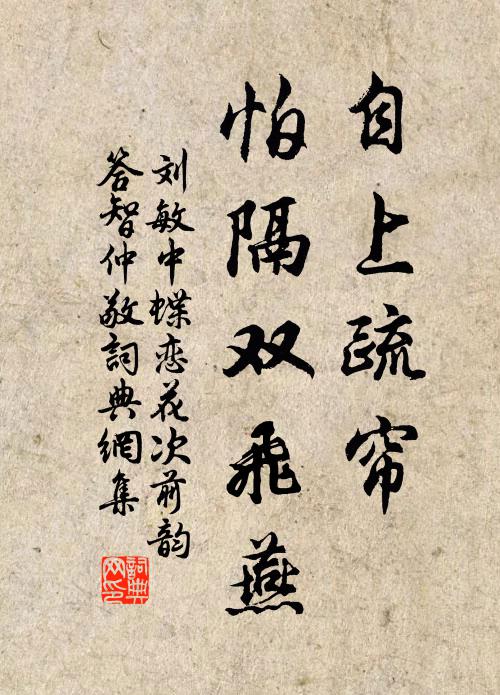 自上疏帘
怕隔双飛燕
刘敏中蝶恋花次前韵
答智仲敬詞典網集
詞典网印